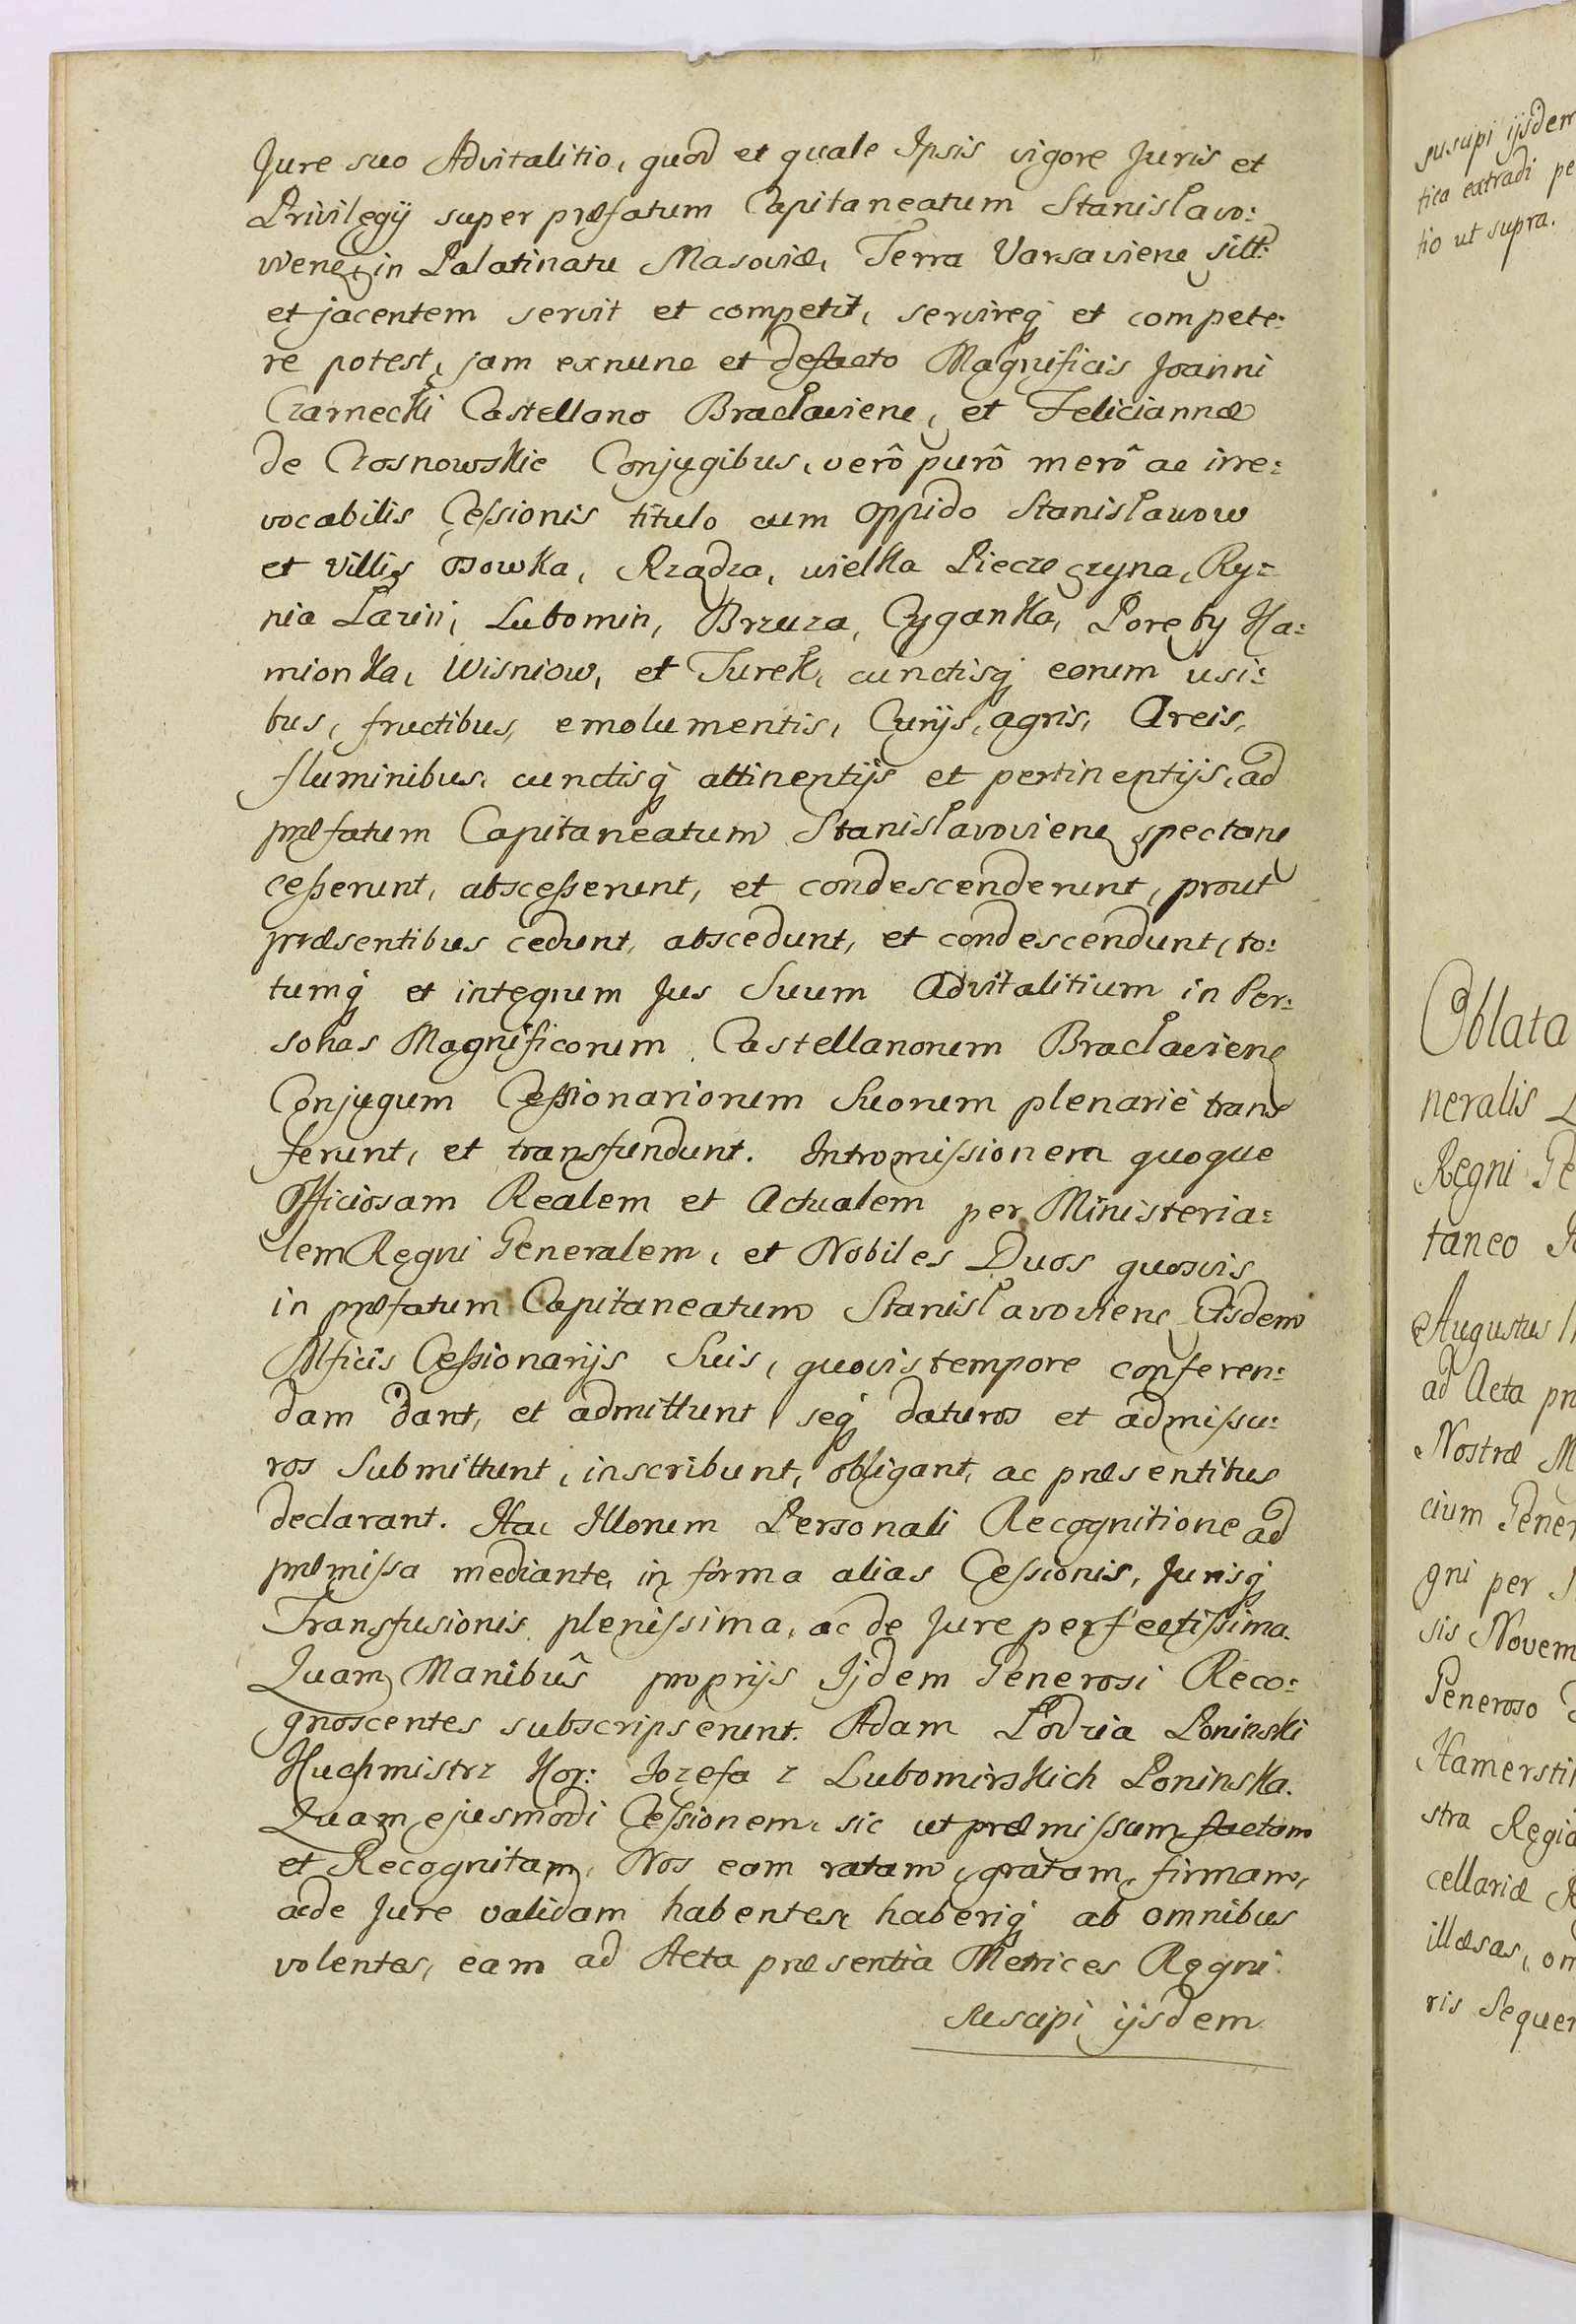 Jure suo Advitalitio, quod et quale Ipsis vigore Juris et
Privilegij super præfatum Capitaneatum Stanislavo:
wiene, in Palatinatu Masoviæ, Terra Varsaviene sitt:
et jacentem servit et competit, servireq́ et compete:
re potest, jam exnunc et defacto Magnificis Joanni
Czarnecki Castellano Bracłaviene, et Feliciannæ
de Czosnowskie Conjugibus, verô purô merô ac irre:
vocabilis Cessionis titulo cum Oppido Stanisławow
et Villis Ossowka, Rządza, wielka Pieczegzyna, Ry:
nia Łaziń, Lubomin, Brzuza, Cyganka, Poręby Ka:
mionka, Wisniow, et Turek, cunctisq́ eorum usi:
bus, fructibus, emolumentis, Curijs, agris, Areis,
fluminibus, cunctisq́ attinentijs et pertinentijs, ad
præfatum Capitaneatum Stanislavoviene spectane
cesserunt, abscesserunt, et condescenderunt, prout
præsentibus cedunt, abscedunt, et condescendunt, to:
tumq́ et integrum Jus Suum Advitalitium in Per:
sonas Magnificorum Castellanorum Bracłaviene
Conjugum Cessionariorum Suorum plenariè trans
ferunt, et transfundunt. Intromissionem quoque
Officiosam Realem et Actualem per Ministeria:
lem Regni Generalem, et Nobiles Duos quosvis
in præfatum Capitaneatum Stanislavoviene Eisdem
Mficis Cessionarijs Suis, quovis tempore conferen:
dam dant, et admittunt, seq́ daturos et admissu:
ros submittunt, inscribunt, obligant, ac præsentibus
declarant. Hac Illorum Personali Recognitione ad
præmissa mediante, in forma alias Cessionis, Jurisq́
Transfusionis plenissima, ac de Jure perfectissima.
Quam Manibus proprijs Ijdem Generosi Reco:
gnoscentes subscripserunt. Adam Łodzia Poninski
Kuchmistrz Kor: Jozefa z Lubomirskich Poninska.
Quam ejusmodi Cessionem, sic ut præmissum factam
et Recognitam, Nos eam ratam, gratam, firmam,
acde Jure validam habentes, haberiq́ ab omnibus
volentes, eam ad Acta præsentia Metrices Regni
suscipi ijsdem
suscipi ijsdem
tica extradi pe
tio ut supra.
Oblata
neralis
Regni Ge
taneo
Augustus
ad Acta pr
Nostræ M
cium Gener
gni per
sis Novem
Generoso
Hamersti
stra Regia
cellariæ
illæsas, om
ris Sequen